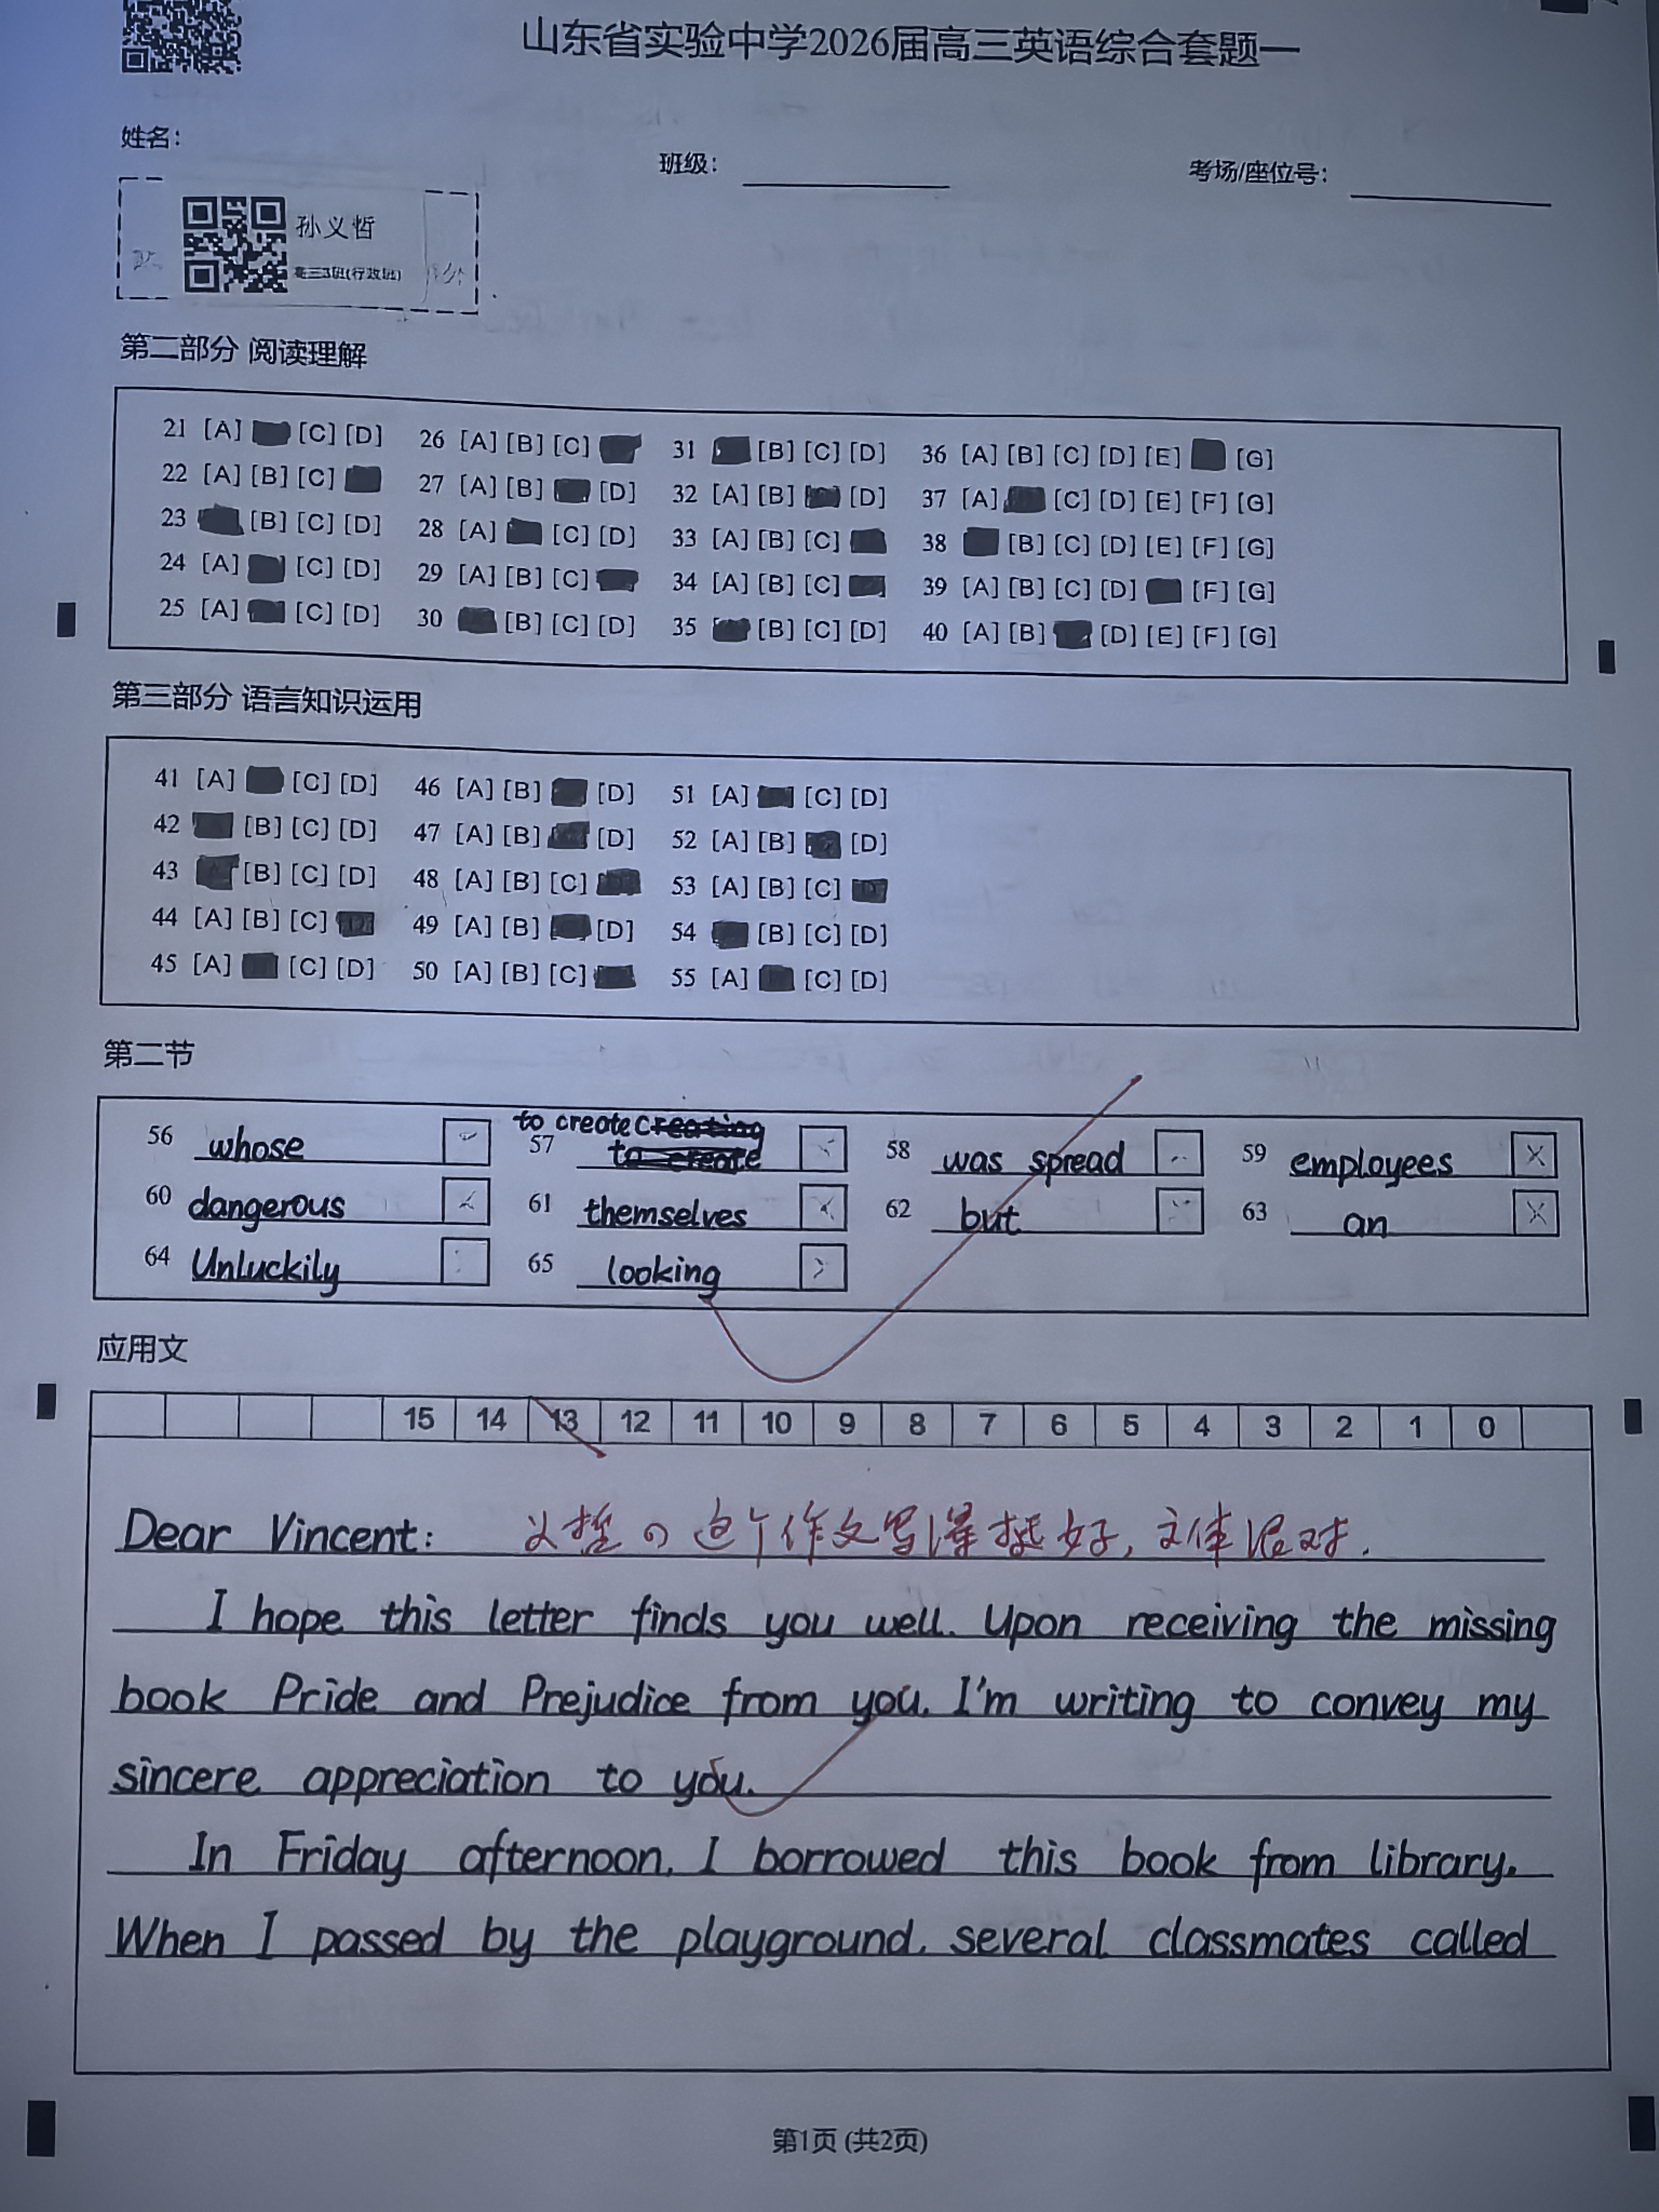 山东省实验中学2026届高三英语综合套题一
姓名:
班级:
考场/座位号:
孙义哲
高三3班(行政班)
第二部分 阅读理解
21 [A] [C] [D] 26 [A] [B] [C] 31 [B] [C] [D] 36 [A] [B] [C] [D] [E] [G]
22 [A] [B] [C] 27 [A] [B] [D] 32 [A] [B] [D] 37 [A] [C] [D] [E] [F] [G]
23 [B] [C] [D] 28 [A] [C] [D] 33 [A] [B] [C] 38 [B] [C] [D] [E] [F] [G]
24 [A] [C] [D] 29 [A] [B] [C] 34 [A] [B] [C] 39 [A] [B] [C] [D] [F] [G]
25 [A] [C] [D] 30 [B] [C] [D] 35 [B] [C] [D] 40 [A] [B] [D] [E] [F] [G]
第三部分 语言知识运用
41 [A] [C] [D] 46 [A] [B] [D] 51 [A] [C] [D]
42 [B] [C] [D] 47 [A] [B] [D] 52 [A] [B] [D]
43 [B] [C] [D] 48 [A] [B] [C] 53 [A] [B] [C]
44 [A] [B] [C] 49 [A] [B] [D] 54 [B] [C] [D]
45 [A] [C] [D] 50 [A] [B] [C] 55 [A] [C] [D]
第二节
56 whose 57 to create 58 was spread 59 employees
60 dangerous 61 themselves 62 but 63 an
64 Unluckily 65 looking
应用文
15 14 13 12 11 10 9 8 7 6 5 4 3 2 1 0
Dear Vincent: 义哲の这个作文写得挺好,文体很对.
I hope this letter finds you well. Upon receiving the missing
book Pride and Prejudice from you, I'm writing to convey my
sincere appreciation to you.
In Friday afternoon, I borrowed this book from library.
When I passed by the playground, several classmates called
第1页 (共2页)